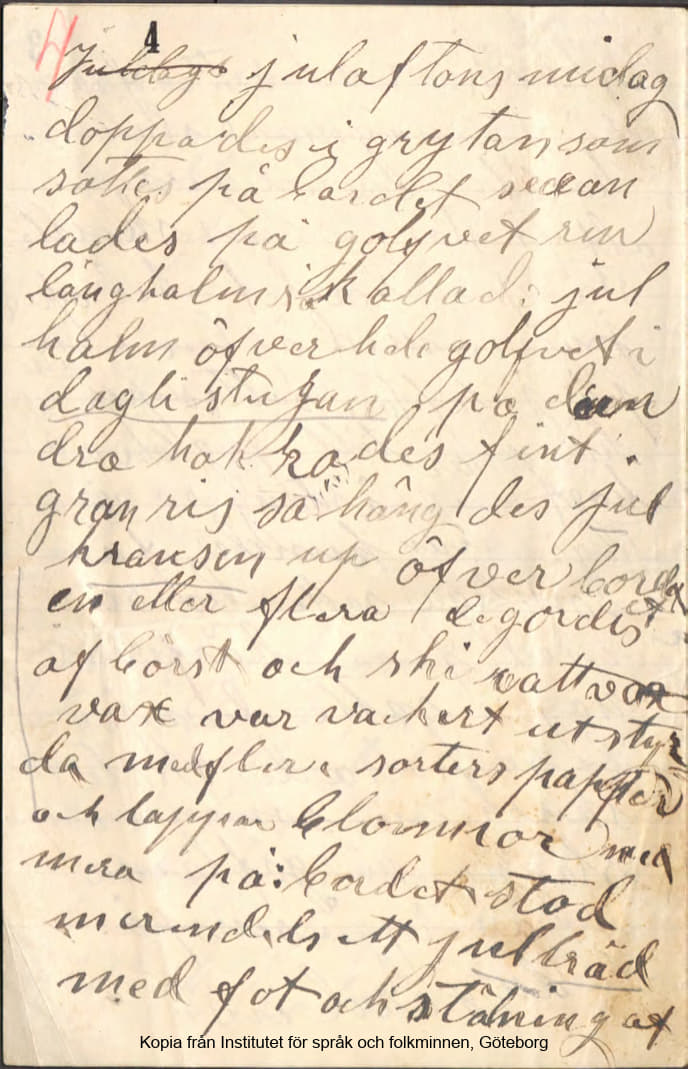 4
Juldags julaftons midag
doppades i grytan som
sattes på bordet sedan
lades på golfvet ren
långhalm så kallad jul
halm öfver hela golfvet i
dagli stugan på den
dra hak kades fint
granris så häng des jul
kransen up öfver bordet
en eller flera de gordes
af börst och skirvatt vax
vax var vackert utstyr
da med flere sorters papper
och lappar blommor med
mera på: bordet stod
merendels ett julträd
med fot och stälning af
Kopia från Institutet för språk och folkminnen, Göteborg